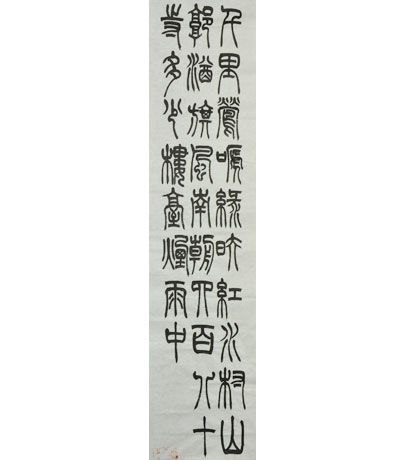 千里鶯嗁綠映紅水村山
郭酒旗風南朝四百八十
寺多少樓臺煙雨中